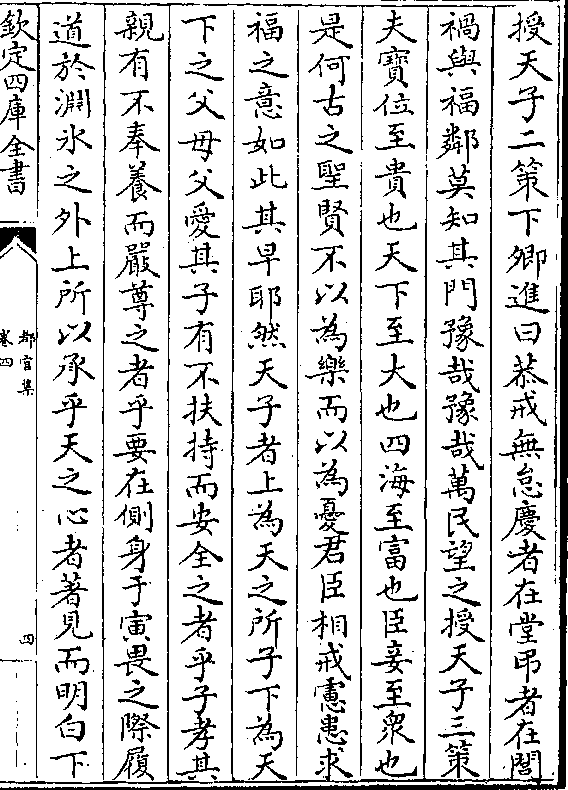 授天子二策下卿進曰恭戒無怠慶者在堂弔者在閭
禍與福鄰莫知其門豫哉豫哉萬民望之授天子三策
夫寶位至貴也天下至大也四海至富也臣妾至衆也
是何古之聖賢不以為樂而以為憂君臣相戒慮患求
福之意如此其早耶然天子者上為天之所子下為天
下之父母父愛其子有不扶持而安全之者乎子孝其
親有不奉養而嚴尊之者乎要在側身于寅畏之際履
道於淵氷之外上所以承乎天之心者著見而明白下
欽定四庫全書
都官集
卷四
四